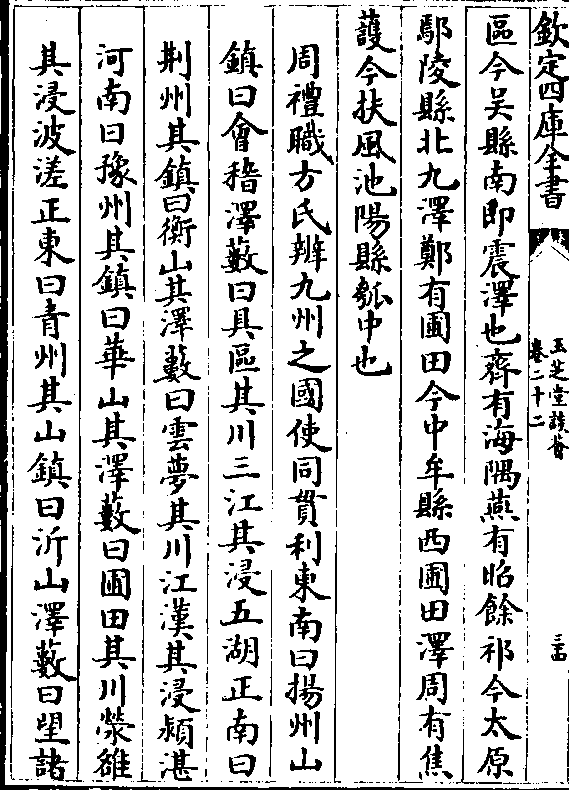 欽定四庫全書
玉芝堂談薈
卷二十二
三四
區今吳縣南即震澤也齊有海隅燕有昭餘祁今太原
鄔陵縣北九澤鄭有圃田今中牟縣西圃田澤周有焦
護今扶風池陽縣瓠中也
周禮職方氏辨九州之國使同貫利東南曰揚州山
鎮曰會稽澤藪曰具區其川三江其浸五湖正南曰
荆州其鎮曰衡山其澤藪曰雲夢其川江漢其浸潁湛
河南曰豫州其鎮曰華山其澤藪曰圃田其川滎雒
其浸波溠正東曰青州其山鎮曰沂山澤藪曰望諸